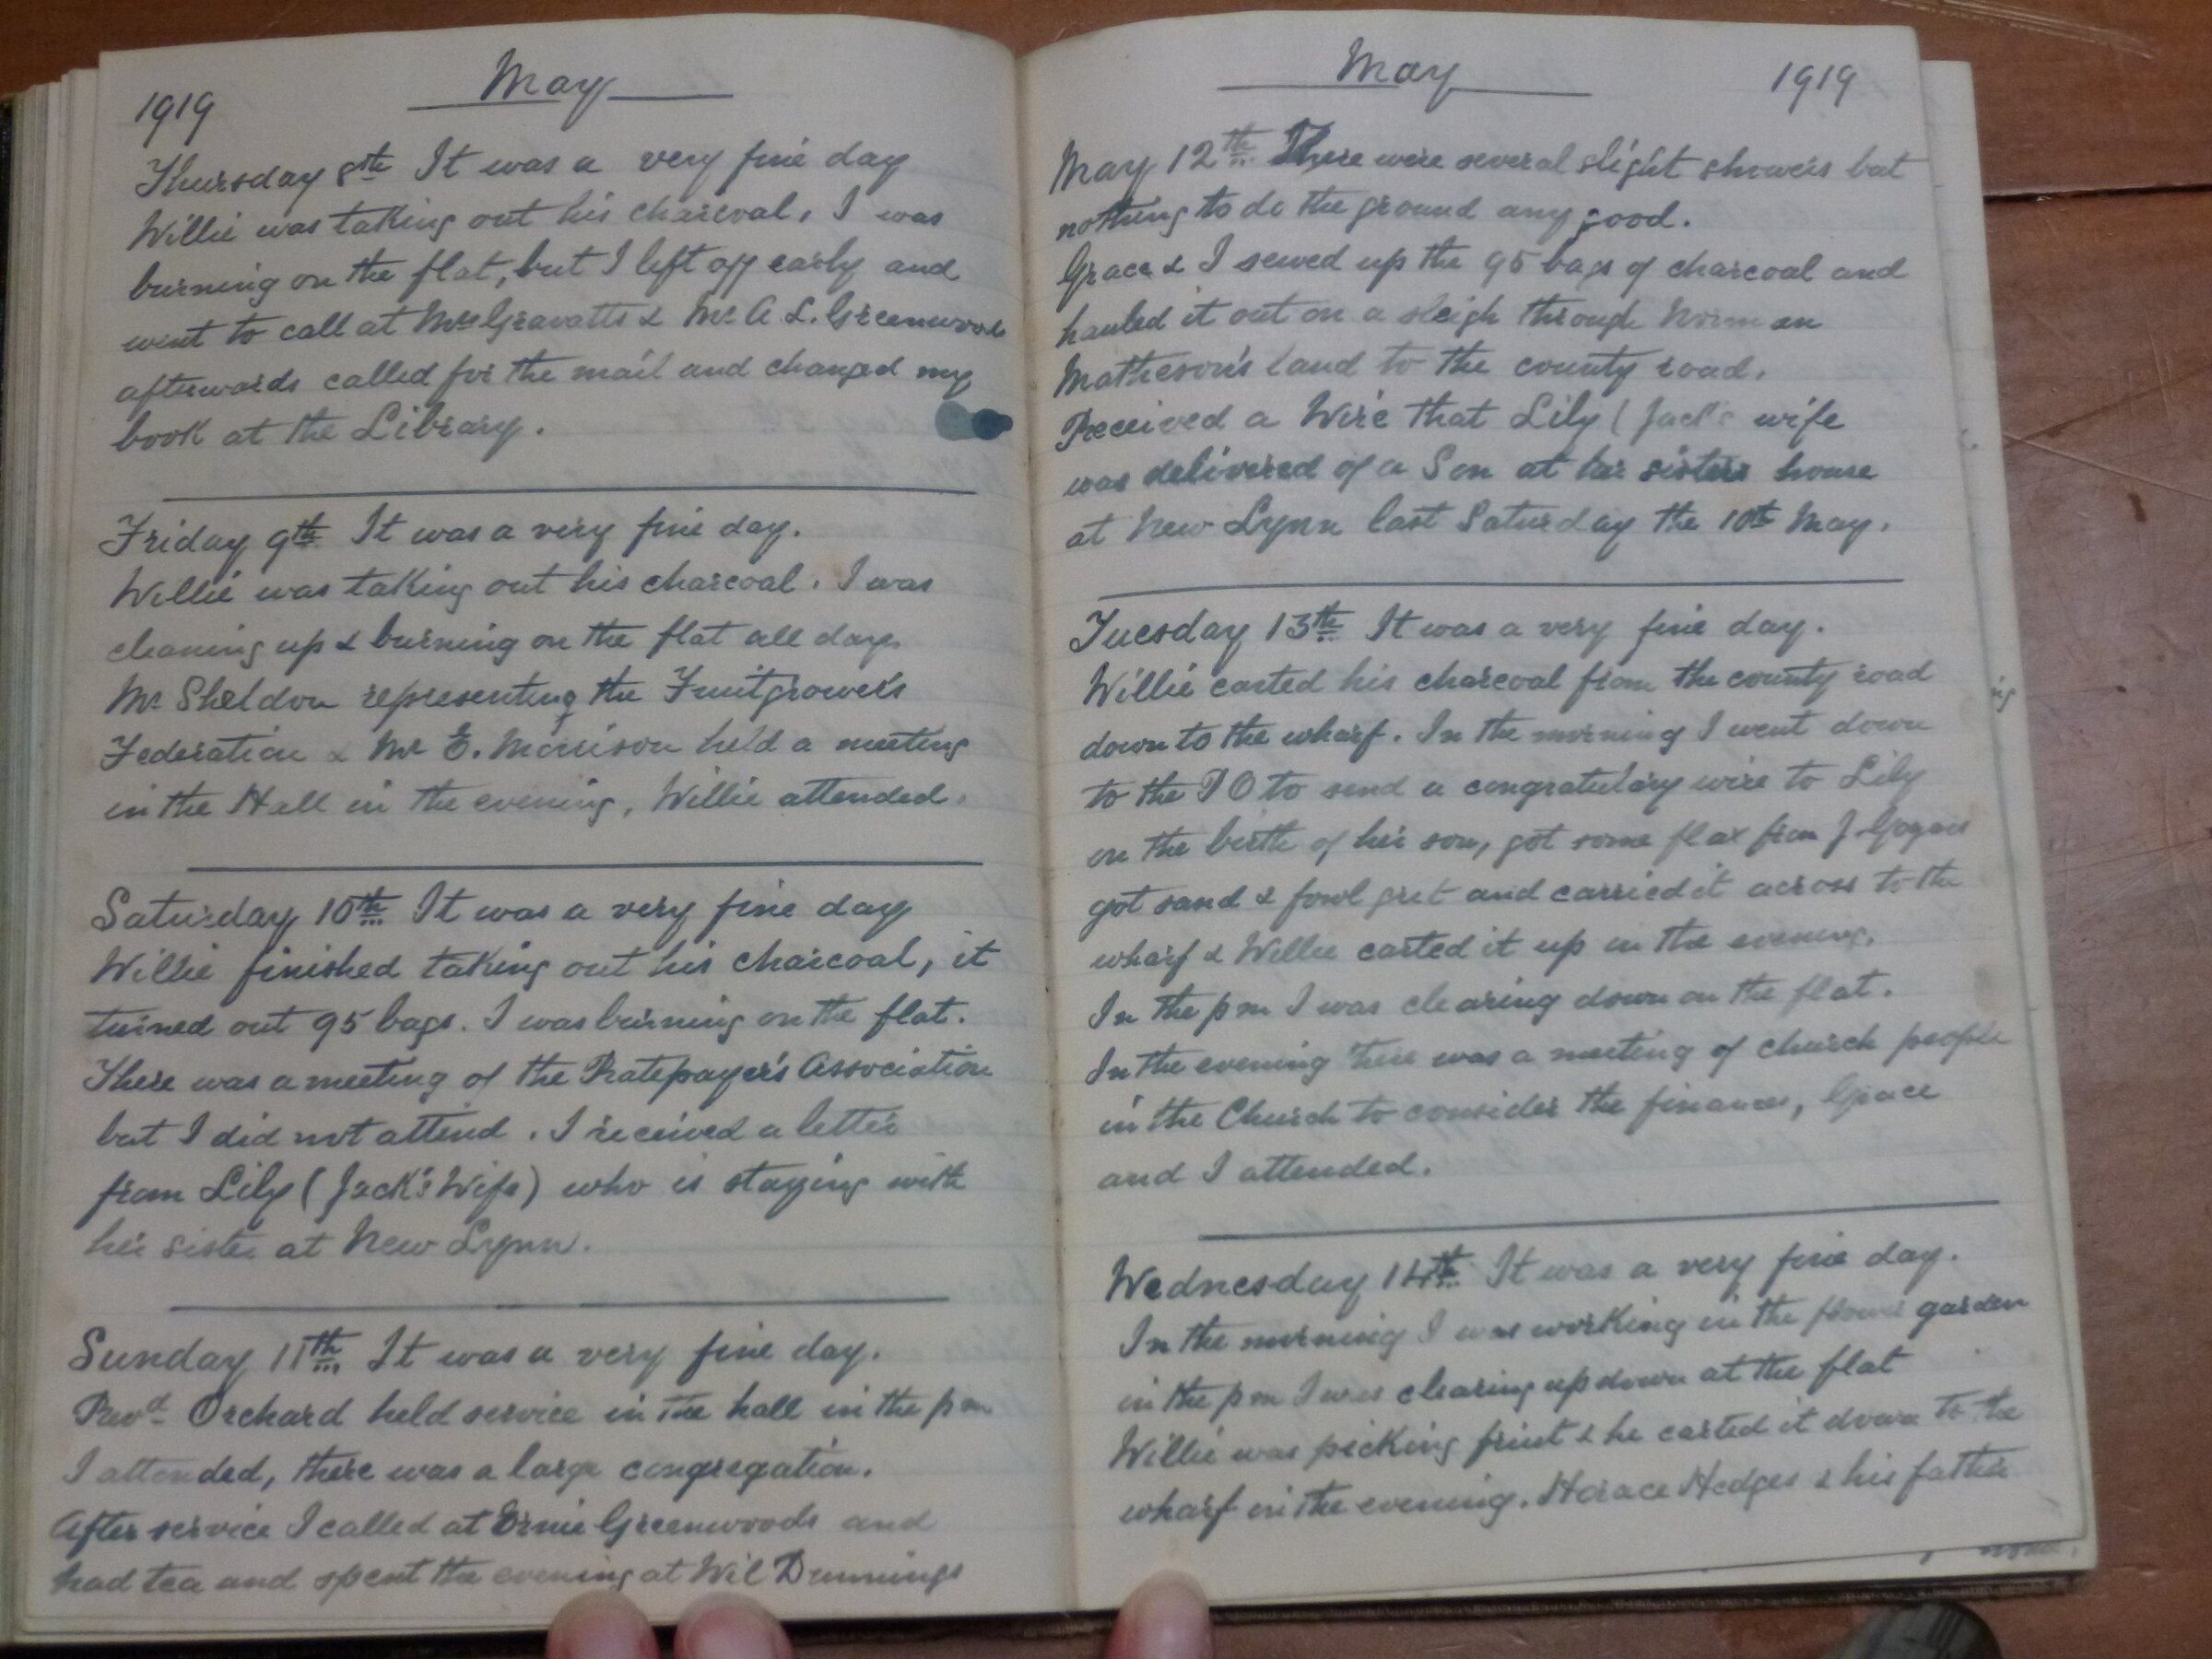 1919 May
Thursday 8th It was a very fine day
Willie was taking out his charcoal. I was
burning on the flat, but I left off early and
went to call at Mrs Gravatts & Mr A. L. Greenwoods
afterwards called for the mail and changed my
book at the Library.
Friday 9th It was a very fine day.
Willie was taking out his charcoal. I was
cleaning up & burning on the flat all day.
Mr Sheldon representing the Fruitgrower's
Federation & Mr E. Morrison held a meeting
in the Hall in the evening, Willie attended.
Saturday 10th It was a very fine day
Willie finished taking out his charcoal, it
turned out 95 bags. I was burning on the flat.
There was a meeting of the Ratepayer's Association
but I did not attend. I received a letter
from Lily (Jack's Wife) who is staying with
her sister at New Lynn.
Sunday 11th It was a very fine day.
Revd Orchard held service in the hall in the pm
I attended, there was a large congregation.
After service I called at Ernie Greenwoods and
had tea and spent the evening at Wil Dunnings
May 1919
May 12th There were several slight showers but
nothing to do the ground any good.
Grace & I sewed up the 95 bags of charcoal and
hauled it out on a sleigh through Norman
Matheson's land to the county road.
Received a Wire that Lily (Jack's wife
was delivered of a Son at her sisters house
at New Lynn last Saturday the 10th May.
Tuesday 13th It was a very fine day.
Willie carted his charcoal from the county road
down to the wharf. In the morning I went down
to the PO to send a congratulary wire to Lily
on the birth of her son, got some flax from J
got sand & fowl grit and carried it across to the
wharf & Willie carted it up in the evening.
In the pm I was clearing down on the flat.
In the evening there was a meeting of church people
in the Church to consider the finances, Grace
and I attended.
Wednesday 14th It was a very fine day.
In the morning I was working in the flower garden
in the pm I was clearing up down at the flat
Willie was picking fruit & he carted it down to the
wharf in the evening. Horace Hedges & his father